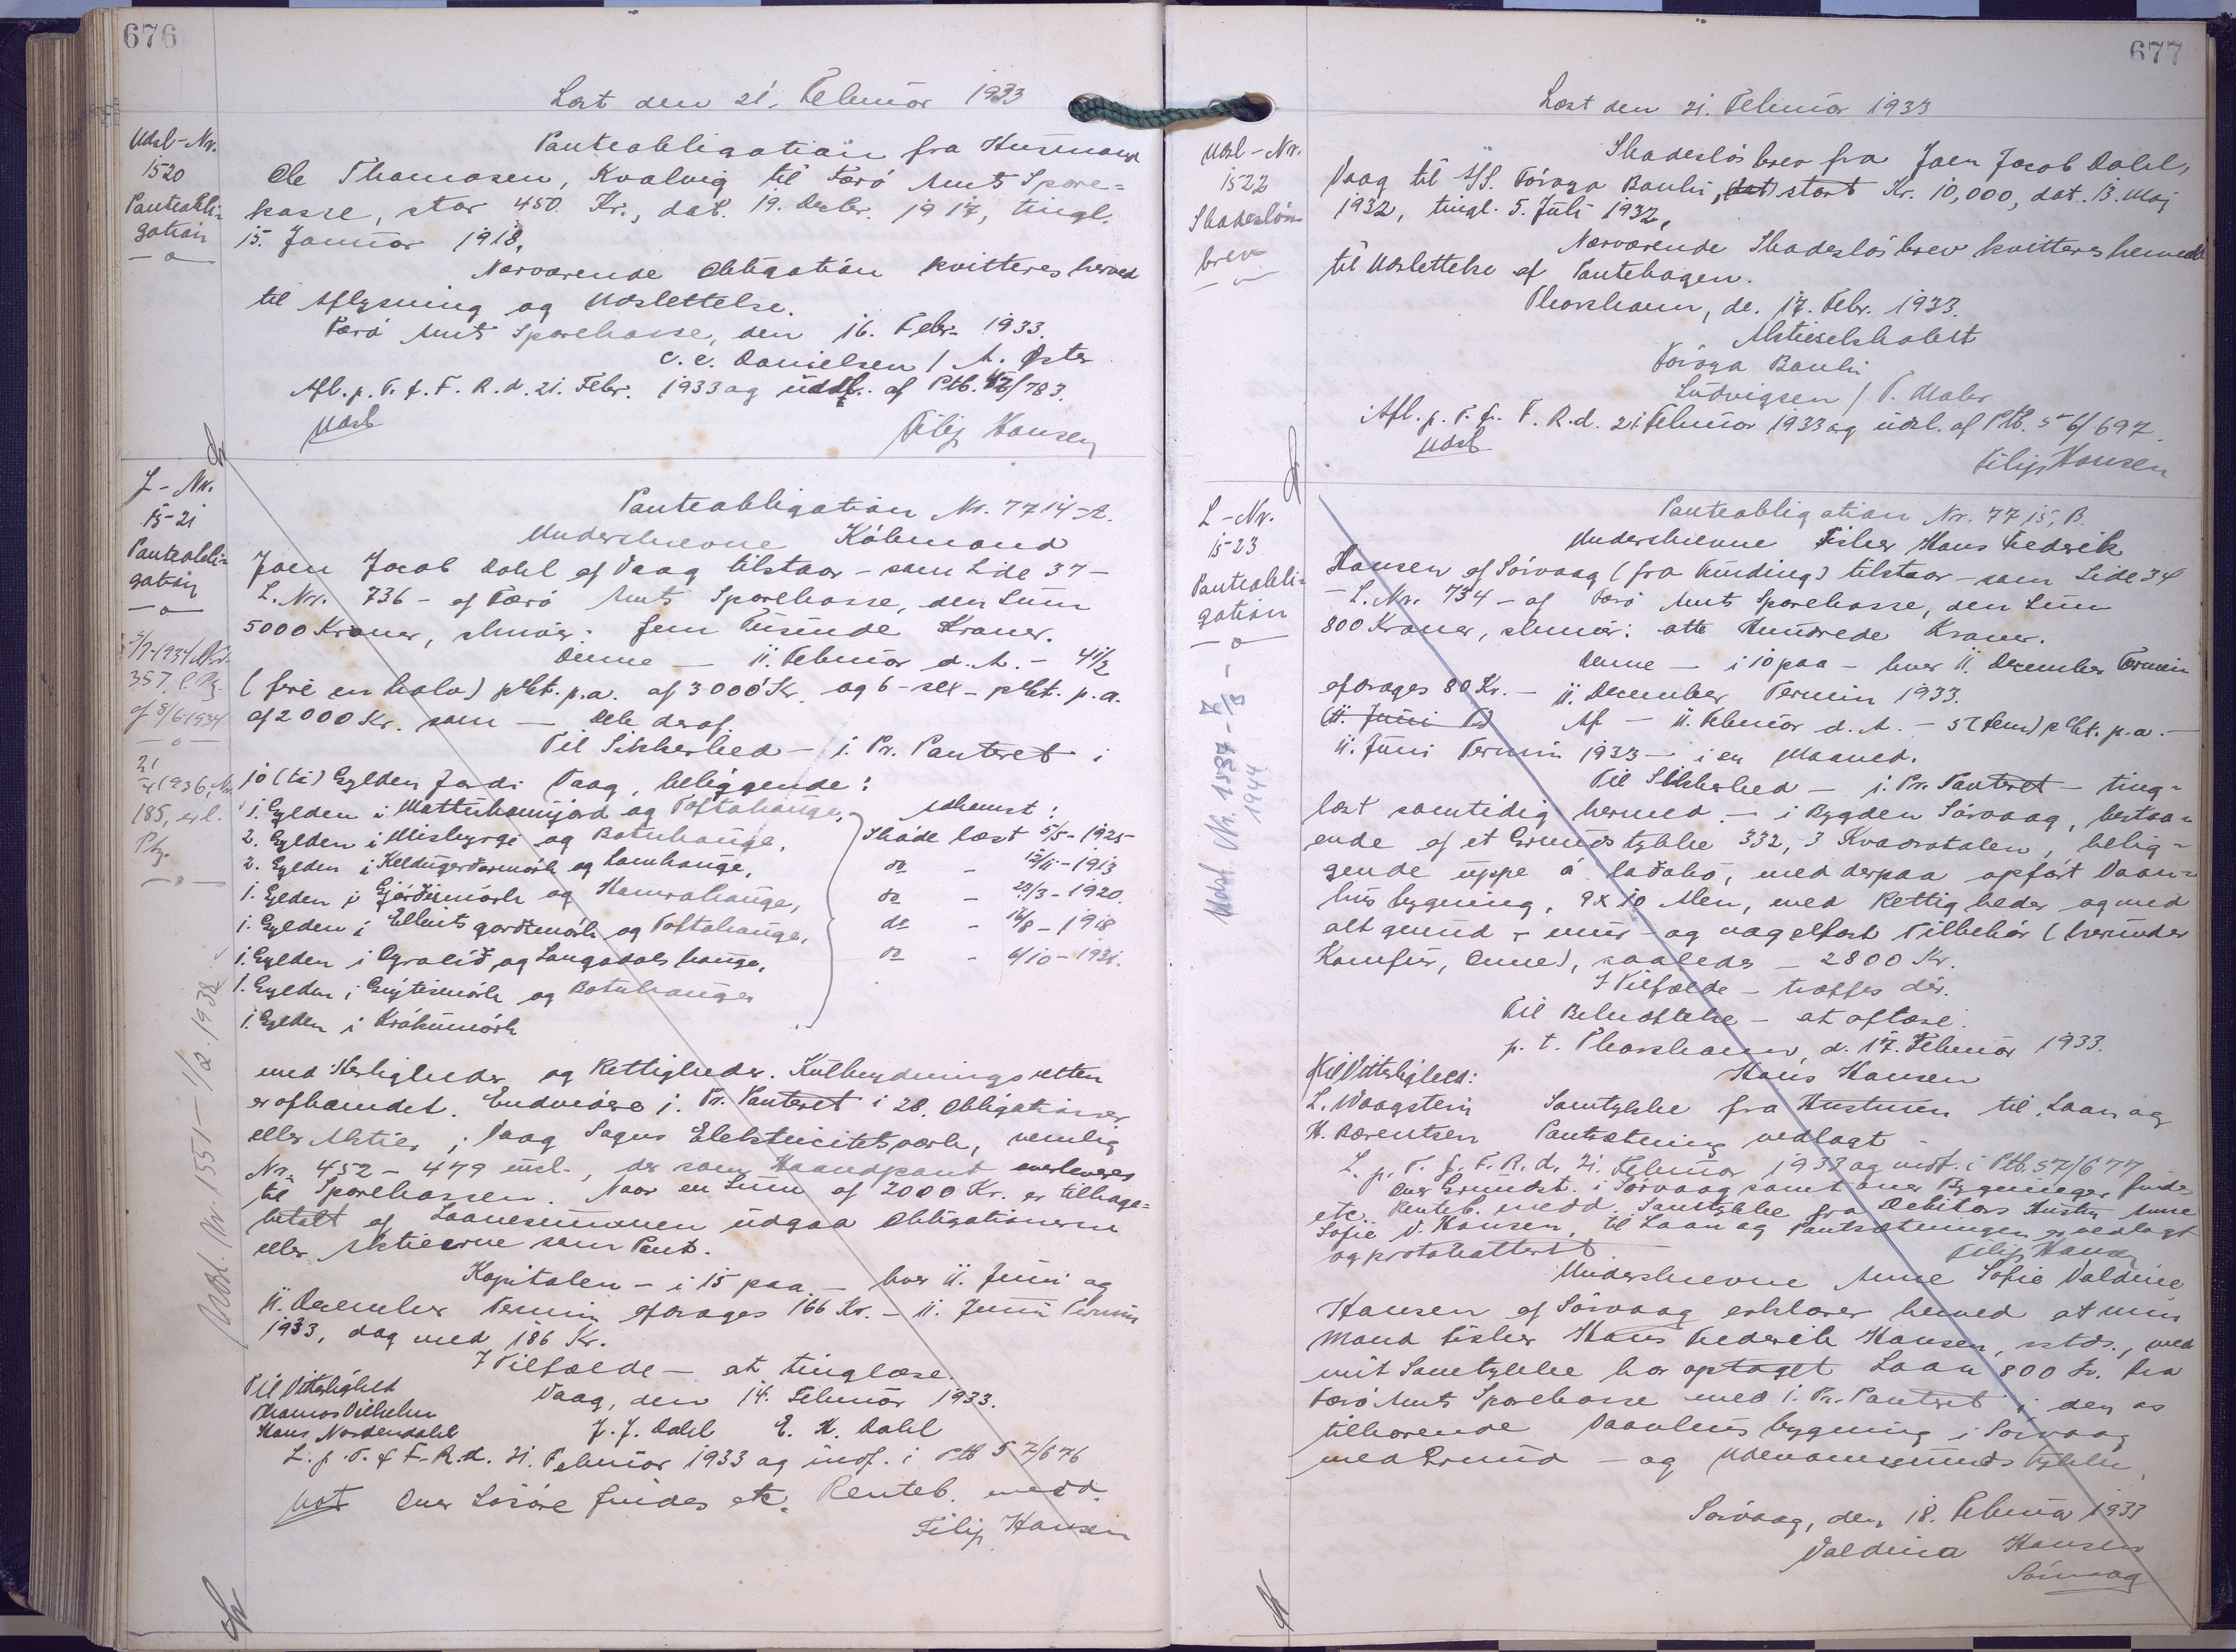 676
Læst den 21. Februar 1933
Udsl-Nr.
1520
Panteobli-
gation
Panteobligation fra Husmand
Ole Thomasen, Kvalvig til Færö Amts Spare-
kasse, stor 450 Kr., dat. 19. Decbr. 1917, tingl.
15. Januar 1918,
Nærværende Obligation kvitteres herved
til Aflysning og Udslettelse.
Færö Amts Sparekasse, den 16. Febr. 1933.
C. C. Danielsen / A. Öster
Afl. p. T. f. F. R. d. 21. Febr. 1933 og udsl. af Ptb. 42/783.
Udsl
Filip Hansen
L-Nr.
1521
Panteobli-
gation
357, l. Ptg.
af 8/6 1934
21
185, erl.
Ptg.
Udsl. Nr. 1551 - 1/2. 1938
Panteobligation Nr. 7714-A.
Underskrevne Köbmand
Joen Jacob Dahl af Vaag tilstaar - som Side 37 -
L. Nr. 736 - af Færö Amts Sparekasse, den Sum
5000 Kroner, skriver: fem Tusinde Kroner.
Denne - 11. Februar d. A. - 4 1/2
(fire en halv) pCt. p.a. af 3000 Kr. og 6 - sex - pCt. p.a.
af 2000 Kr. som - Dele deraf.
Til Sikkerhed - 1. Pr. Panteret i
10 (ti) Gylden Jord i Vaag, beliggende:
1. Gylden i Mattuhannjord og Toftahauge,
2. Gylden i Misbyrgi og Botnhauge,
2. Gylden i Keldugerðarmörk og Lamhauge,
1. Gylden i Gjörðismörk og Hamrahauge,
1. Gylden i Ellintsgarðsmörk og Toftahauge,
1. Gylden i Ogralið og Langadals hauge,
1. Gylden i Gnýtismörk og Botnhauges
1. Gylden i Krákumörk
Adkomst:
Sköde læst 5/5 - 1925
do - 12/11 - 1913
do - 23/3 - 1920.
do - 16/8 - 1918
do - 6/10 - 1931.
med Herligheder og Rettigheder. Kulbrydningsretten
er afhændet. Endvidere 1. Pr. Panteret i 28. Obligationer
eller Aktier i Vaag Sogns Elektricitetsværk, nemlig
Nr. 452 - 479 incl., der som Haandpant overleveres
til Sparekassen. Naar en Sum af 2000 Kr. er tilbage-
betalt af Laanesummen udgaa Obligationerne
eller Aktierne som Pant.
Kapitalen - i 15 paa - hver 11. Juni og
11. December Termin afdrages 166 Kr. - 11. Juni Termin
1933, dog med 186 Kr.
I Tilfælde - at tinglæse.
Til Vitterlighed
Thomas Vilhelm
Hans Nordendahl
Vaag, den 14. Februar 1933.
J. J. Dahl E. K. Dahl
L. p. T. f. F. R. d. 21. Februar 1933 og indf. i Ptb 57/676
Not Over Lösöre findes etc. Renteb. medd.
Filip Hansen
677
Læst den 21. Februar 1933
Udsl-Nr.
1522
Skadeslös-
brev
Skadeslösbrev fra Joen Jacob Dahl,
Vaag til A/S. Föroya Banki, stort Kr. 10,000, dat. 13. Maj
1932, tingl. 5. Juli 1932,
Nærværende Skadeslösbrev kvitteres herved
til Udslettelse af Pantebogen.
Thorshavn, d. 17. Febr. 1933.
Aktieselskabet
Föroya Banki
Ludvigsen / P. Mohr
Afl. p. T. f. F. R. d. 21. Februar 1933 og udsl. af Ptb. 56/697.
Udsl
Filip Hansen
L-Nr.
1523
Panteobli-
gation
Udsl. Nr. 1537 - 7/8 - 1944
Panteobligation Nr. 7715, B.
Underskrevne Fisker Hans Frederik
Hansen af Sörvaag (fra Kunding) tilstaar - som Side 34
- L. Nr. 734 - af Færö Amts Sparekasse, den Sum
800 Kroner, skriver: otte Hundrede Kroner.
Denne - i 10 paa - hver 11. December Termin
afdrages 80 Kr. - 11. December Termin 1933.
(11. Juni T) Af - 11. Februar d. A. - 5 (fem) pCt. p.a. -
11. Juni Termin 1933 - i en Maaned.
Til Sikkerhed - 1. Pr. Panteret - ting-
læst samtidig hermed - i Bygden Sörvaag, bestaa-
ende af et Grundstykke 332,3 Kvadratalen, belig-
gende uppe á Laðabö, med derpaa opfört Vaan-
husbygning, 9 x 10 Alen, med Rettigheder og med
alt grund - mur - og nagelfast Tilbehör (herunder
Komfur, Ovne), saaledes - 2800 Kr.
I Tilfælde - træffes dér.
Til Bekræftelse - at aflæse.
p. t. Thorshavn, d. 17. Februar 1933.
Til Vitterlighed:
L. Waagstein
H. Bærentsen
Hans Hansen
Samtykke fra Hustruen til Laan og
Pantsætning vedlagt -
L. p. T. f. F. R. d. 21. Februar 1933 og indf. i Ptb. 57/677
Over Grundst. i Sörvaag samt over Bygninger findes
etc. Renteb. medd. Samtykke fra Debitors Hustru Anne
Sofie V. Hansen, til Laan og Pantsætningen er vedlagt
og protokolleret.
Filip Hansen
Underskrevne Anne Sofie Valdine
Hansen af Sörvaag erklærer herved at min
Mand Fisker Hans Frederik Hansen, sstds., med
mit Samtykke har optaget Laan 800 Kr. fra
Færö Amts Sparekasse med 1. Pr. Panteret i den os
tilhörende Vaanhusbygning i Sörvaag
med Grund - og Udenomsgrundstykke,
Sörvaag, den 18. Februar 1933
Valdina Hansen
Sörvaag